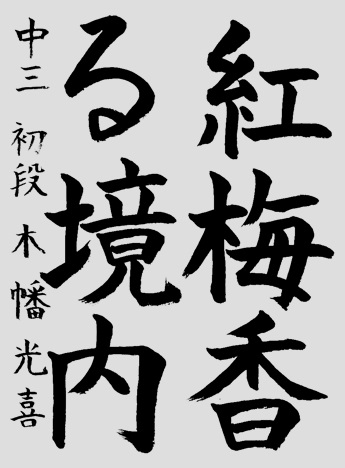 紅梅香
る境内
中三 初段 木幡光喜